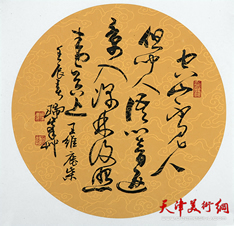 空山不见人
但闻人语响返
景入深林复照
青苔上 王维鹿柴
壬辰春
天津美術網